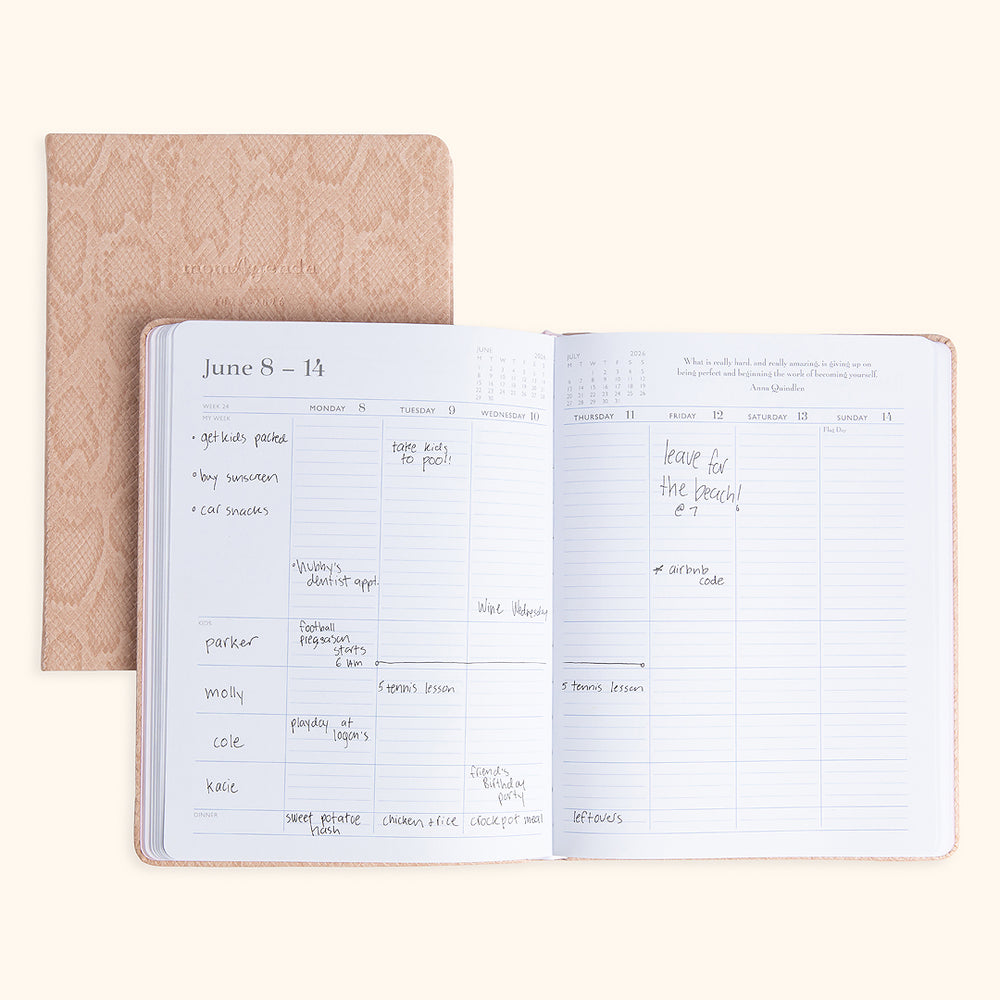 momAgenda
June 8 – 14
JUNE 2026
M T W T F S S
JULY 2026
M T W T F S S
What is really hard, and really amazing, is giving up on
being perfect and beginning the work of becoming yourself.
Anna Quindlen
WEEK 24
MONDAY 8
TUESDAY 9
WEDNESDAY 10
THURSDAY 11
FRIDAY 12
SATURDAY 13
SUNDAY 14
MY WEEK
Flag Day
• get kids packed
• buy sunscreen
• car snacks
take kids
to pool!
leave for
the beach!
@ 7
• hubby's
dentist appt.
* airbnb
code
Wine Wednesday
KIDS
parker
football
preseason
starts
6 AM
molly
5 tennis lesson
5 tennis lesson
cole
playday at
logan's
kacie
friend's
Birthday
party
DINNER
sweet potatoe
hash
chicken + rice
crockpot meal
leftovers